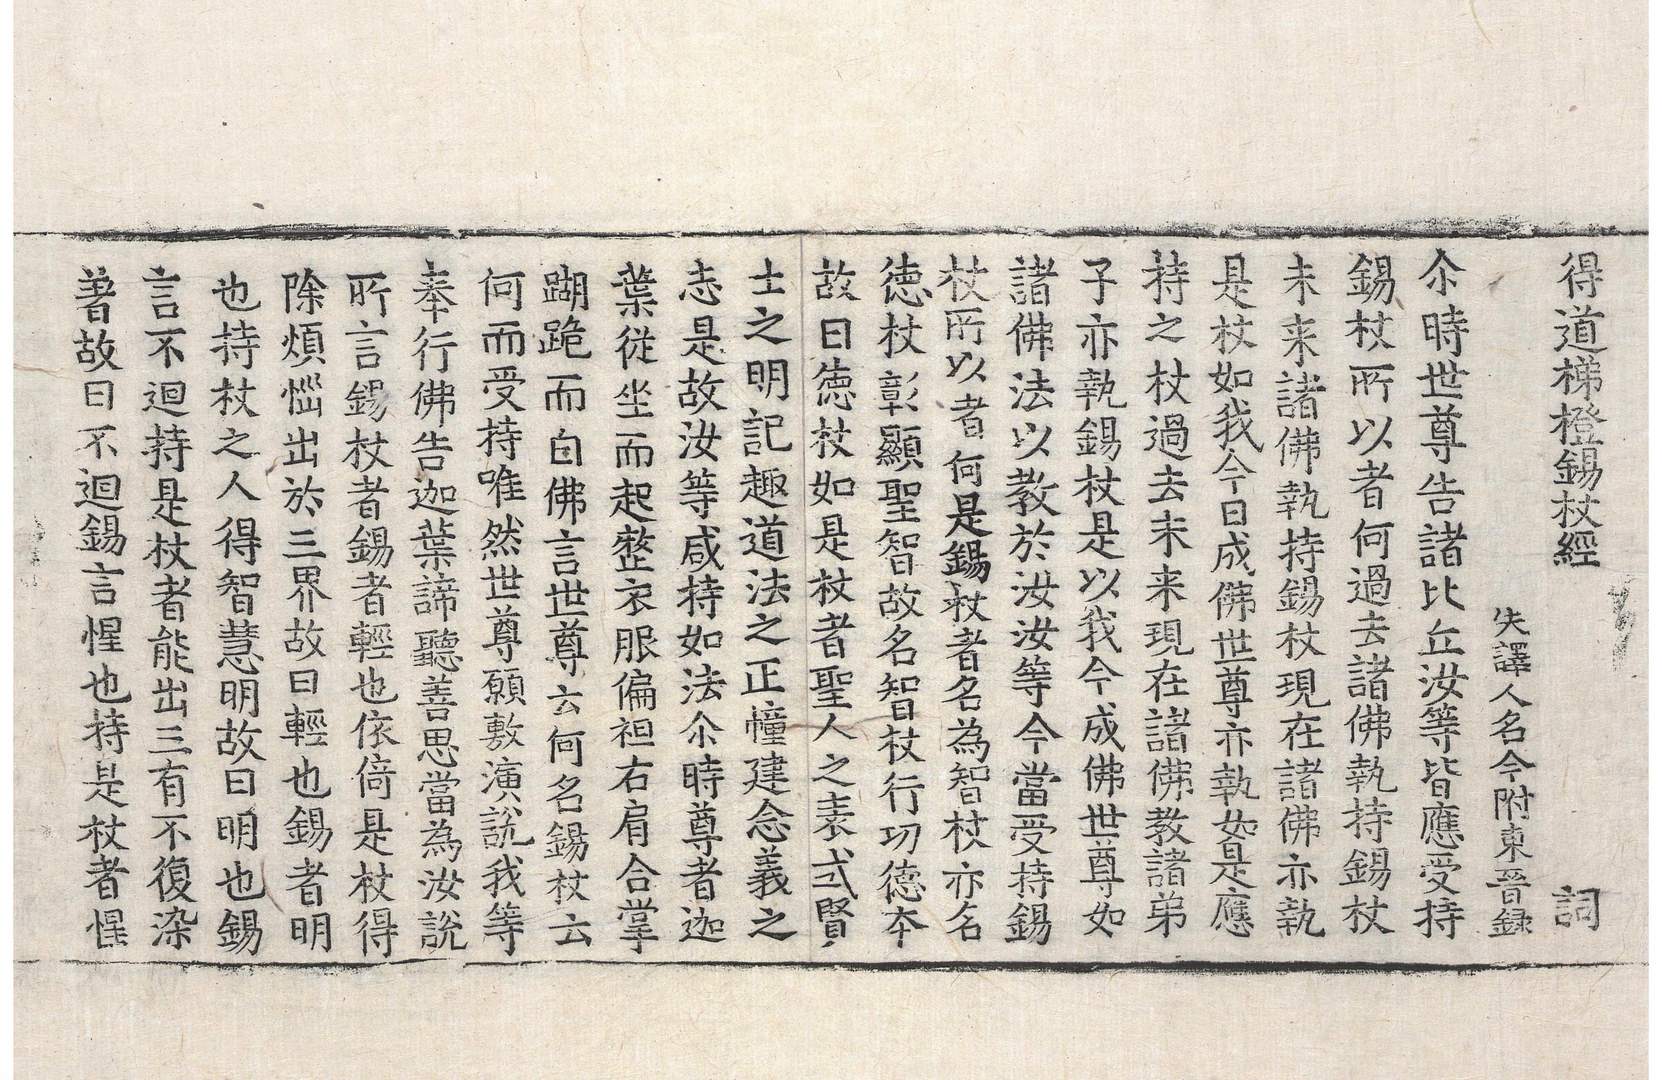 得道梯橙錫杖經 詞
失譯人名今附東晉録
尒時世尊告諸比丘汝等皆應受持
錫杖所以者何過去諸佛執持錫杖
未来諸佛執持錫杖現在諸佛亦執
是杖如我今日成佛世尊亦執如是應
持之杖過去未来現在諸佛教諸弟
子亦執錫杖是以我今成佛世尊如
諸佛法以教於汝汝等今當受持錫
杖所以者何是錫杖者名為智杖亦名
德杖彰顯聖智故名智杖行功德本
故曰徳杖如是杖者聖人之表式賢
士之明記趣道法之正幢建念義之
志是故汝等咸持如法尒時尊者迦
葉從坐而起整衣服偏袒右肩合掌
蹦跪而白佛言世尊云何名錫杖云
何而受持唯然世尊願敷演說我等
奉行佛告迦葉諦聽善思當為汝說
所言錫杖者錫者輕也依倚是杖得
除煩惱出於三界故曰輕也錫者明
也持杖之人得智慧明故曰明也錫
言不迴持是杖者能出三有不復染
著故曰不迴錫言惺也持是杖者惺